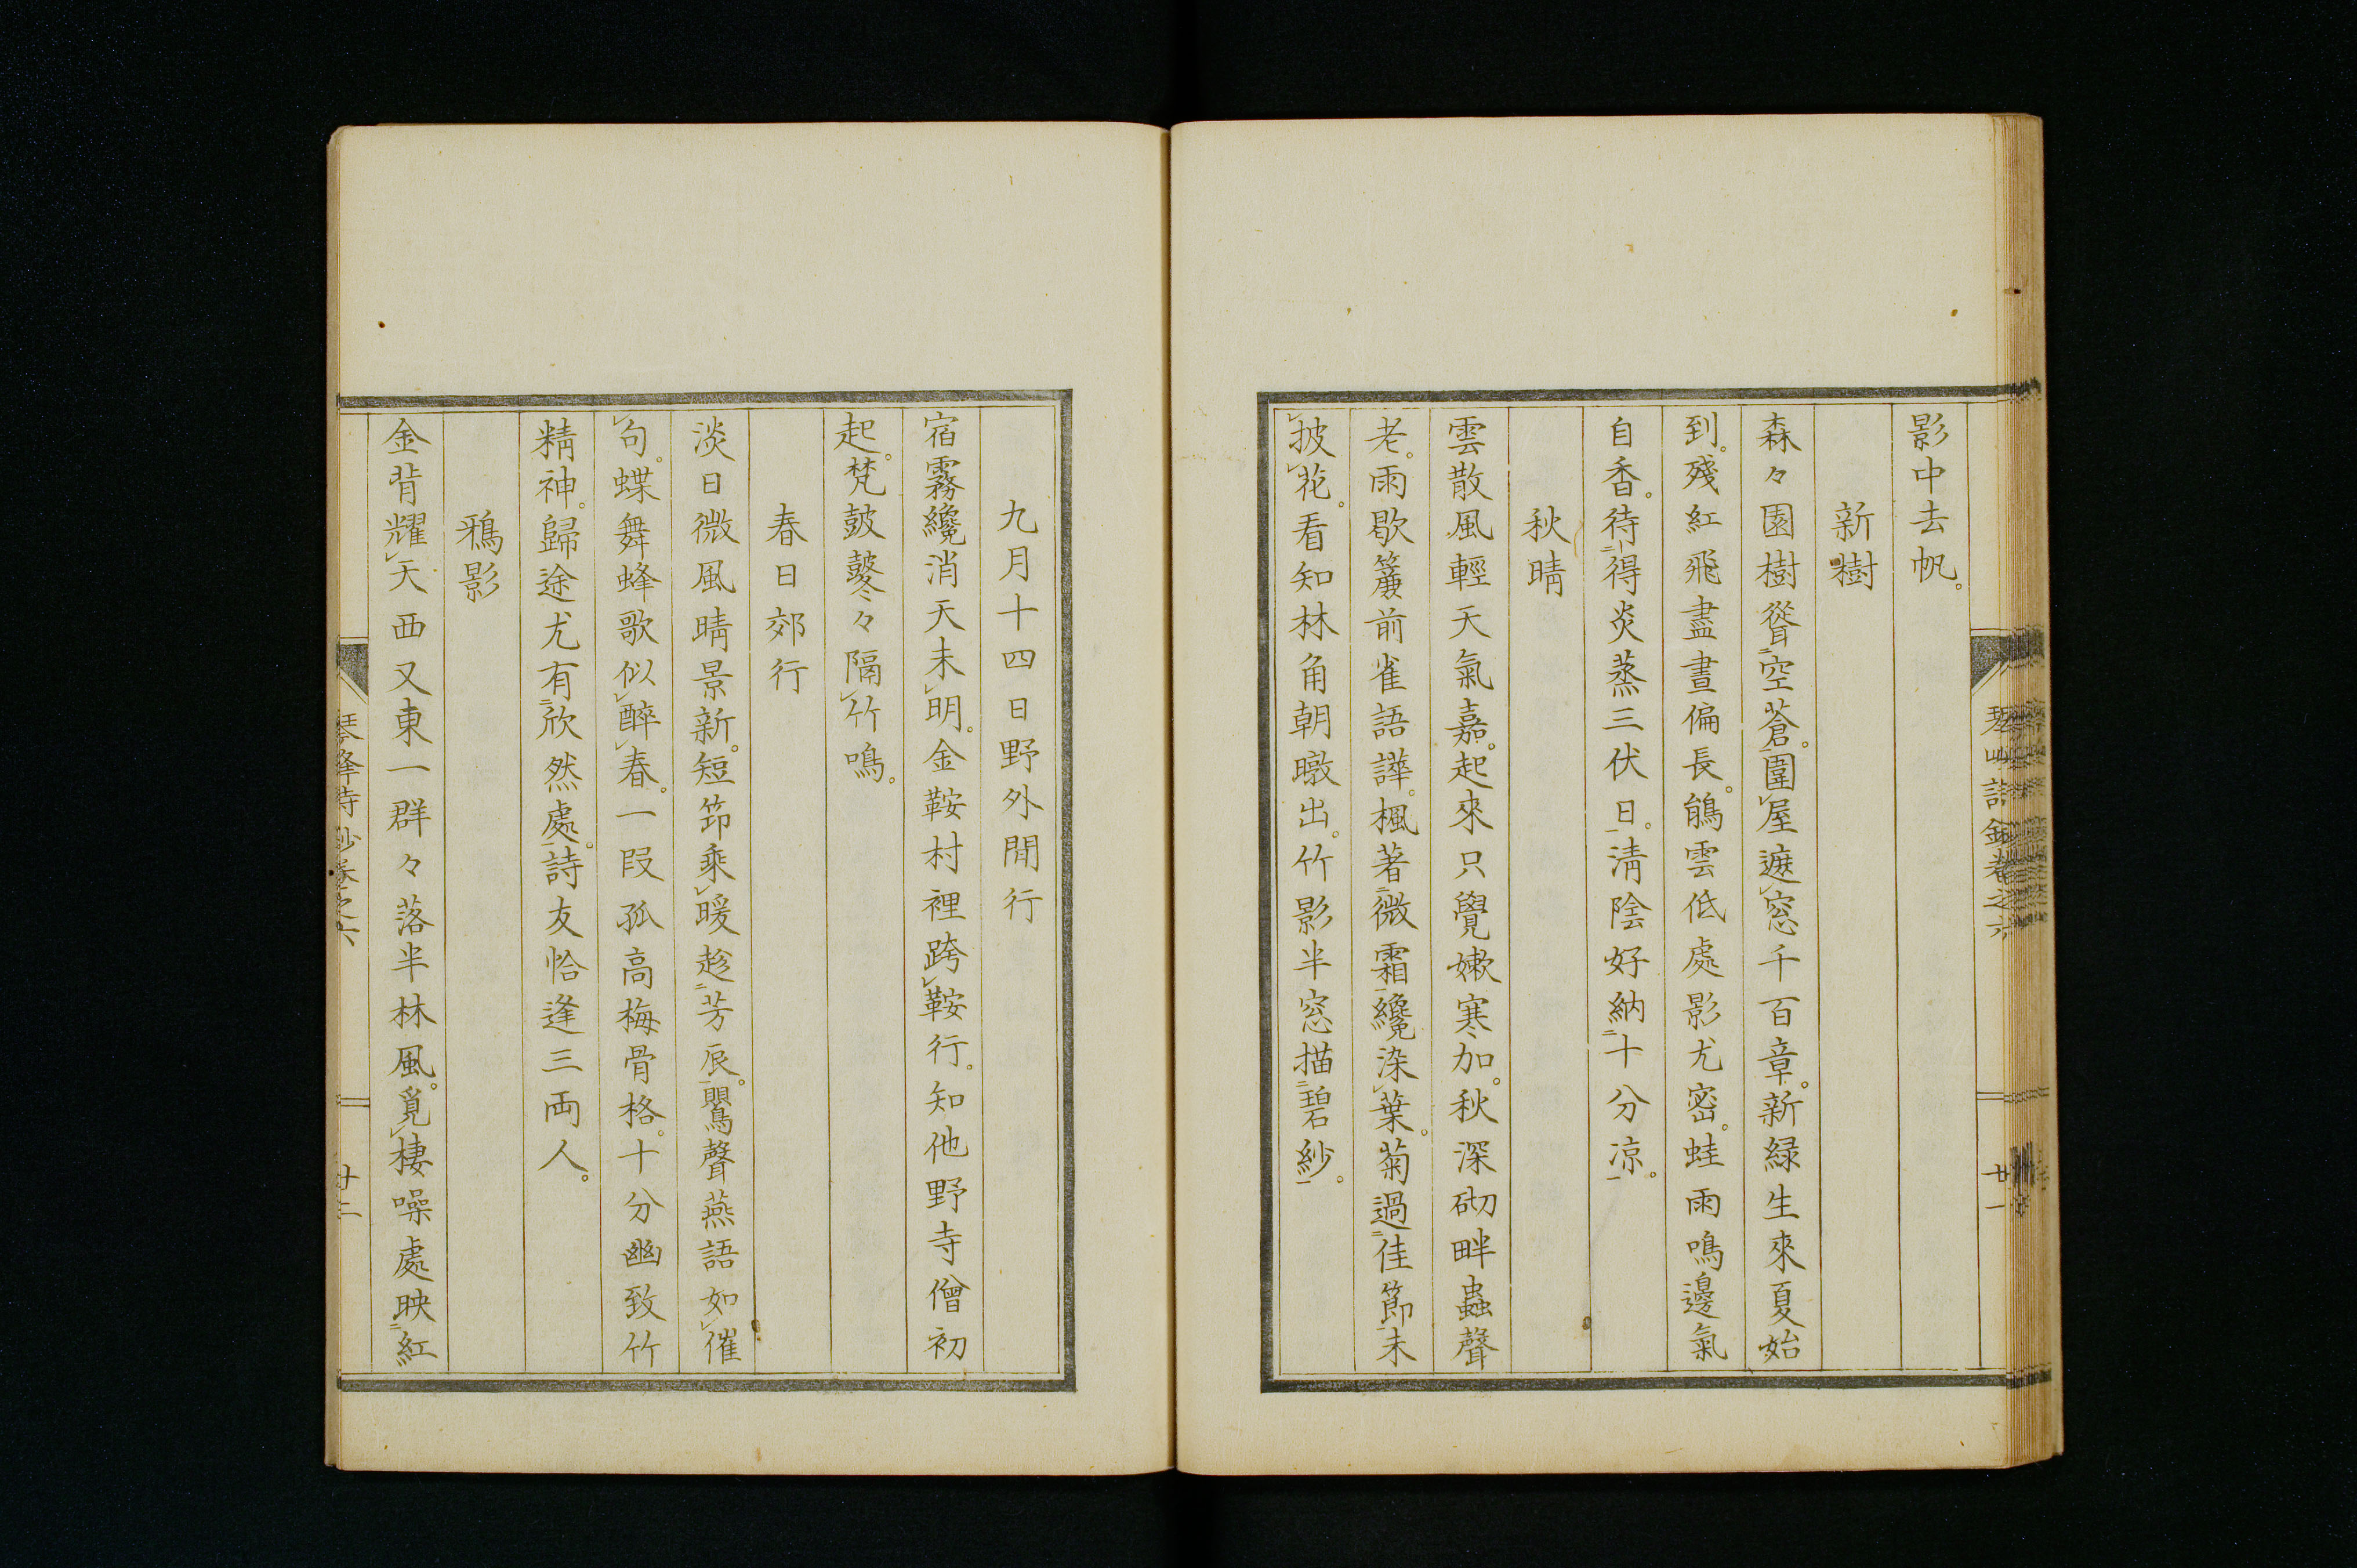 影中去帆。
新樹
森々園樹聳空蒼。圍屋遮窓千百章。新緑生來夏始
到。殘紅飛盡晝偏長。鵃雲低處影尤密。蛙雨鳴邊氣
自香。待得炎蒸三伏日。清陰好納十分凉。
秋晴
雲散風輕天氣嘉。起來只覺嫰寒加。秋深砌畔蟲聲
老。雨歇簷前雀語譁。楓著微霜纔染葉。菊過佳節未
披花。看知林角朝暾出。竹影半窓描碧紗。
廿一
九月十四日野外閒行
宿霧纔消天未明。金鞍村裡跨鞍行。知他野寺僧初
起。梵鼓鼕々隔竹鳴。
春日郊行
淡日微風晴景新。短笻乘暖趁芳辰。鸎聲燕語如催
句。蝶舞蜂歌似醉春。一段孤高梅骨格。十分幽致竹
精神。歸途尤有欣然處。詩友恰逢三両人。
鴉影
金背耀天西又東一群々落半林風。覓棲噪處映紅
琴峰詩鈔卷之六
廿二